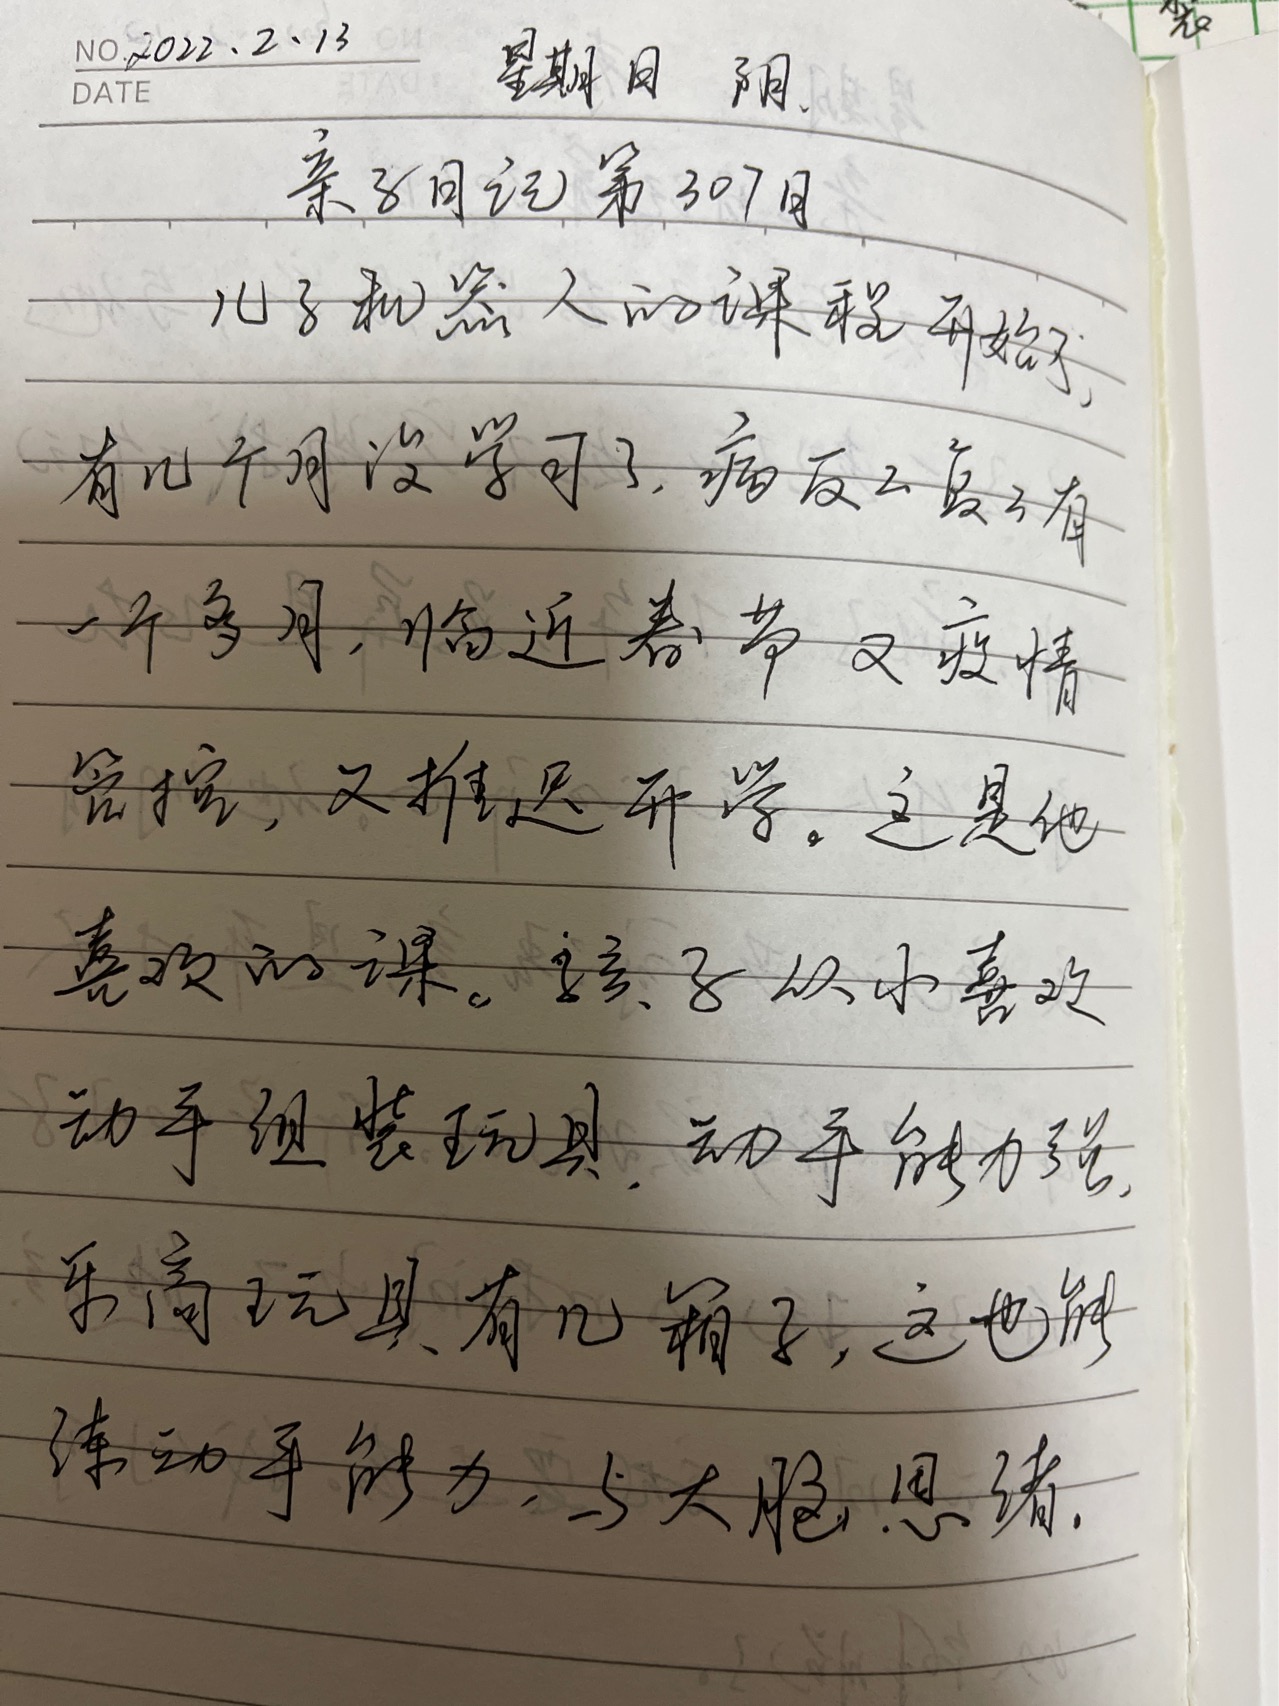 NO. 2022.2.13
DATE
星期日 阴.
亲子日记第307日
儿子机器人的课程开始了,
有几个月没学习了,病反反复复有
一个多月,临近春节又疫情
管控,又推迟开学。这是他
喜欢的课。孩子从小喜欢
动手组装玩具,动手能力强,
乐高玩具有几箱子,这也能
练动手能力,与大脑思绪.